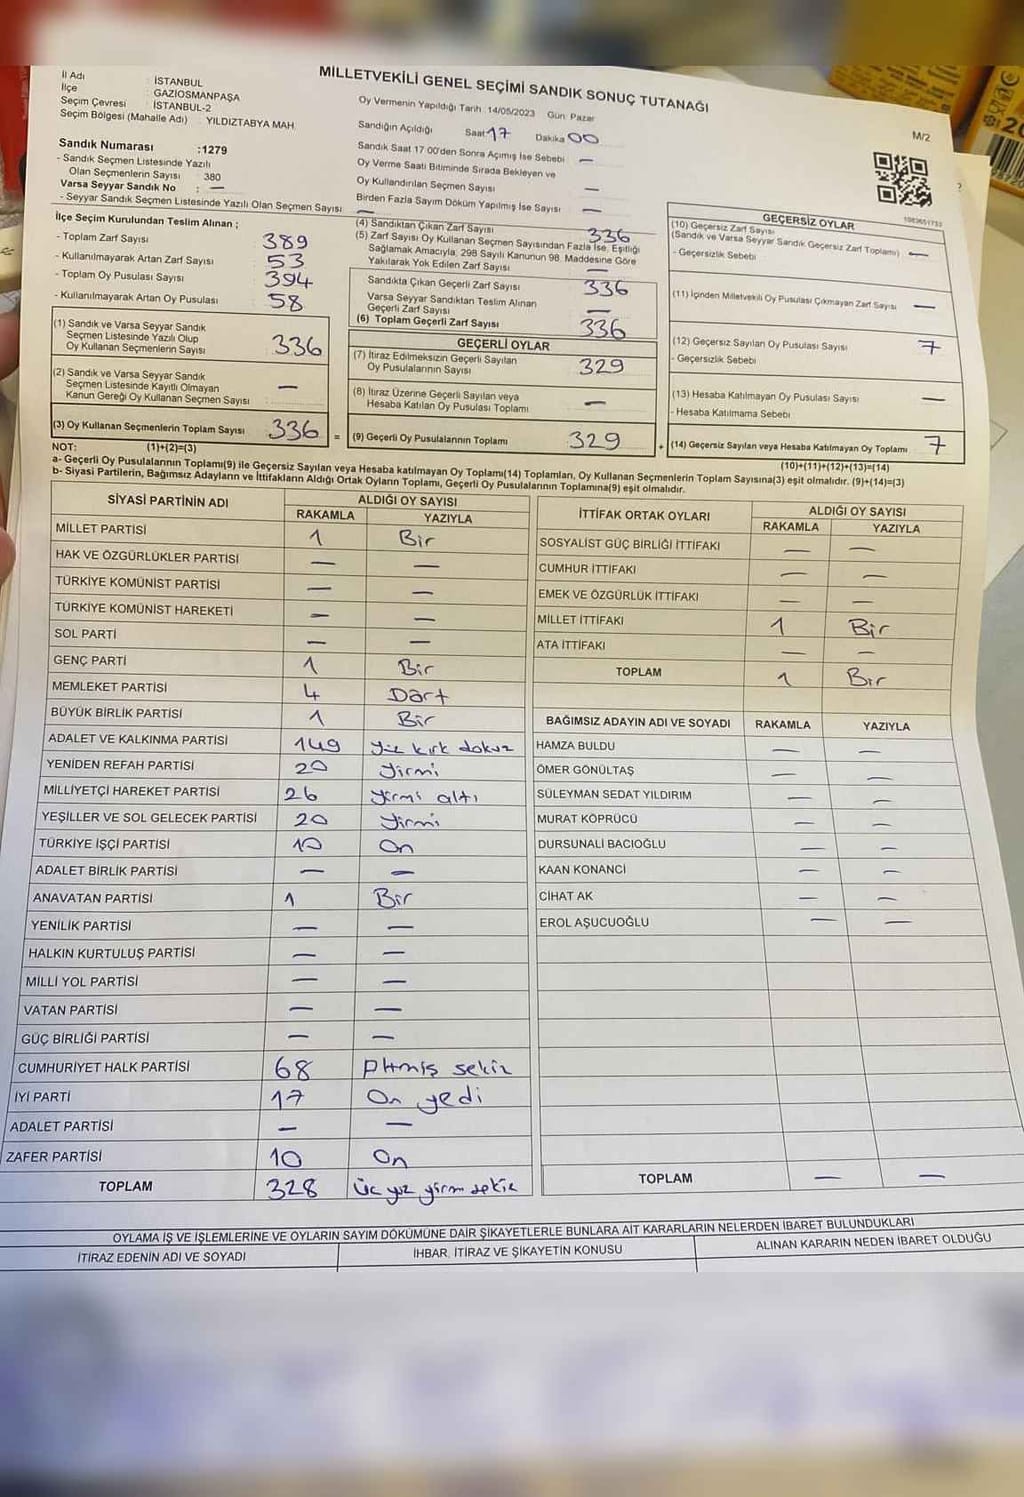 MİLLETVEKİLİ GENEL SEÇİMİ SANDIK SONUÇ TUTANAĞI
M/2
İl Adı : İSTANBUL
İlçe : GAZİOSMANPAŞA
Seçim Çevresi : İSTANBUL-2
Seçim Bölgesi (Mahalle Adı) : YILDIZTABYA MAH.
Sandık Numarası :1279
- Sandık Seçmen Listesinde Yazılı
Olan Seçmenlerin Sayısı : 380
Varsa Seyyar Sandık No : —
- Seyyar Sandık Seçmen Listesinde Yazılı Olan Seçmen Sayısı : —
Oy Vermenin Yapıldığı Tarih : 14/05/2023 Gün: Pazar
Sandığın Açıldığı Saat 17 Dakika 00
Sandık Saat 17:00'den Sonra Açımış İse Sebebi —
Oy Verme Saati Bitiminde Sırada Bekleyen ve
Oy Kullandırılan Seçmen Sayısı —
Birden Fazla Sayım Döküm Yapılmış İse Sayısı —
İlçe Seçim Kurulundan Teslim Alınan ;
- Toplam Zarf Sayısı 389
- Kullanılmayarak Artan Zarf Sayısı 53
- Toplam Oy Pusulası Sayısı 394
- Kullanılmayarak Artan Oy Pusulası 58
(1) Sandık ve Varsa Seyyar Sandık
Seçmen Listesinde Yazılı Olup
Oy Kullanan Seçmenlerin Sayısı 336
(2) Sandık ve Varsa Seyyar Sandık
Seçmen Listesinde Kayıtlı Olmayan
Kanun Gereği Oy Kullanan Seçmen Sayısı : —
(3) Oy Kullanan Seçmenlerin Toplam Sayısı 336 =
(4) Sandıktan Çıkan Zarf Sayısı 336
(5) Zarf Sayısı Oy Kullanan Seçmen Sayısından Fazla İse, Eşitliği
Sağlamak Amacıyla; 298 Sayılı Kanunun 98. Maddesine Göre
Yakılarak Yok Edilen Zarf Sayısı —
Sandıkta Çıkan Geçerli Zarf Sayısı 336
Varsa Seyyar Sandıktan Teslim Alınan
Geçerli Zarf Sayısı —
(6) Toplam Geçerli Zarf Sayısı 336
GEÇERLİ OYLAR
(7) İtiraz Edilmeksizin Geçerli Sayılan
Oy Pusulalarının Sayısı 329
(8) İtiraz Üzerine Geçerli Sayılan veya
Hesaba Katılan Oy Pusulası Toplamı —
(9) Geçerli Oy Pusulalarının Toplamı 329 +
1083651733
GEÇERSİZ OYLAR
(10) Geçersiz Zarf Sayısı
(Sandık ve Varsa Seyyar Sandık Geçersiz Zarf Toplamı) —
- Geçersizlik Sebebi
(11) İçinden Milletvekili Oy Pusulası Çıkmayan Zarf Sayısı —
(12) Geçersiz Sayılan Oy Pusulası Sayısı 7
- Geçersizlik Sebebi
(13) Hesaba Katılmayan Oy Pusulası Sayısı —
- Hesaba Katılmama Sebebi
(14) Geçersiz Sayılan veya Hesaba Katılmayan Oy Toplamı 7
NOT: (1)+(2)=(3)
(10)+(11)+(12)+(13)=(14)
a- Geçerli Oy Pusulalarının Toplamı(9) ile Geçersiz Sayılan veya Hesaba katılmayan Oy Toplamı(14) Toplamları, Oy Kullanan Seçmenlerin Toplam Sayısına(3) eşit olmalıdır. (9)+(14)=(3)
b- Siyasi Partilerin, Bağımsız Adayların ve İttifakların Aldığı Ortak Oyların Toplamı, Geçerli Oy Pusulalarının Toplamına(9) eşit olmalıdır.
SİYASİ PARTİNİN ADI ALDIĞI OY SAYISI
RAKAMLA YAZIYLA
MİLLET PARTİSİ 1 Bir
HAK VE ÖZGÜRLÜKLER PARTİSİ — —
TÜRKİYE KOMÜNİST PARTİSİ — —
TÜRKİYE KOMÜNİST HAREKETİ — —
SOL PARTİ — —
GENÇ PARTİ 1 Bir
MEMLEKET PARTİSİ 4 Dört
BÜYÜK BİRLİK PARTİSİ 1 Bir
ADALET VE KALKINMA PARTİSİ 149 yüz kırk dokuz
YENİDEN REFAH PARTİSİ 20 yirmi
MİLLİYETÇİ HAREKET PARTİSİ 26 yirmi altı
YEŞİLLER VE SOL GELECEK PARTİSİ 20 yirmi
TÜRKİYE İŞÇİ PARTİSİ 10 On
ADALET BİRLİK PARTİSİ — —
ANAVATAN PARTİSİ 1 Bir
YENİLİK PARTİSİ — —
HALKIN KURTULUŞ PARTİSİ — —
MİLLİ YOL PARTİSİ — —
VATAN PARTİSİ — —
GÜÇ BİRLİĞİ PARTİSİ — —
CUMHURİYET HALK PARTİSİ 68 Altmış sekiz
İYİ PARTİ 17 On yedi
ADALET PARTİSİ — —
ZAFER PARTİSİ 10 On
TOPLAM 328 üç yüz yirmi sekiz
İTTİFAK ORTAK OYLARI ALDIĞI OY SAYISI
RAKAMLA YAZIYLA
SOSYALİST GÜÇ BİRLİĞİ İTTİFAKI — —
CUMHUR İTTİFAKI — —
EMEK VE ÖZGÜRLÜK İTTİFAKI — —
MİLLET İTTİFAKI 1 Bir
ATA İTTİFAKI — —
TOPLAM 1 Bir
BAĞIMSIZ ADAYIN ADI VE SOYADI RAKAMLA YAZIYLA
HAMZA BULDU — —
ÖMER GÖNÜLTAŞ — —
SÜLEYMAN SEDAT YILDIRIM — —
MURAT KÖPRÜCÜ — —
DURSUNALİ BACIOĞLU — —
KAAN KONANCİ — —
CİHAT AK — —
EROL AŞUCUOĞLU — —
TOPLAM — —
OYLAMA İŞ VE İŞLEMLERİNE VE OYLARIN SAYIM DÖKÜMÜNE DAİR ŞİKAYETLERLE BUNLARA AİT KARARLARIN NELERDEN İBARET BULUNDUKLARI
İTİRAZ EDENİN ADI VE SOYADI İHBAR, İTİRAZ VE ŞİKAYETİN KONUSU ALINAN KARARIN NEDEN İBARET OLDUĞU